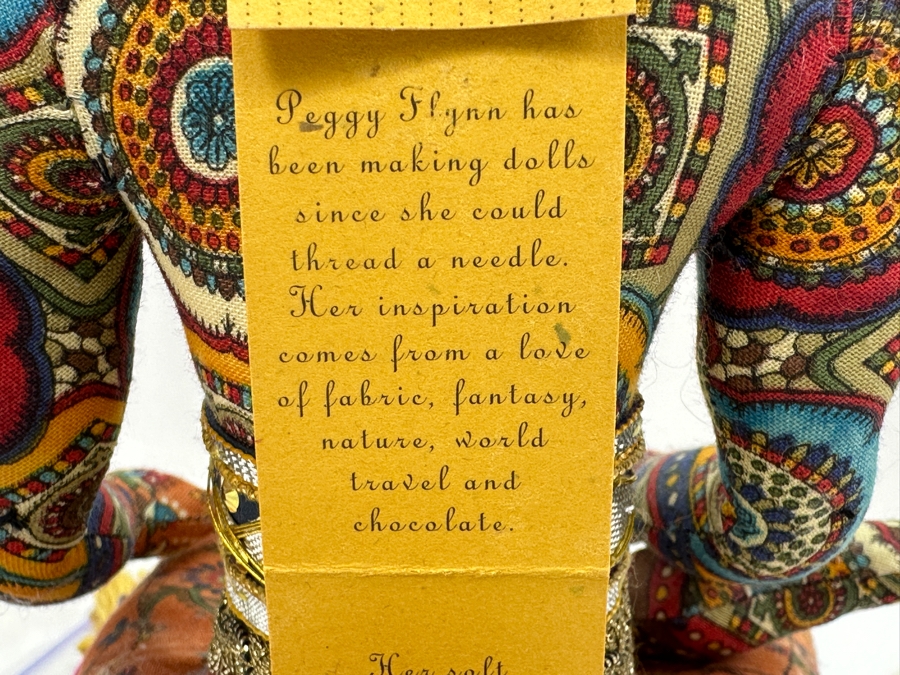 Peggy Flynn has
been making dolls
since she could
thread a needle.
Her inspiration
comes from a love
of fabric, fantasy,
nature, world
travel and
chocolate.
Her soft